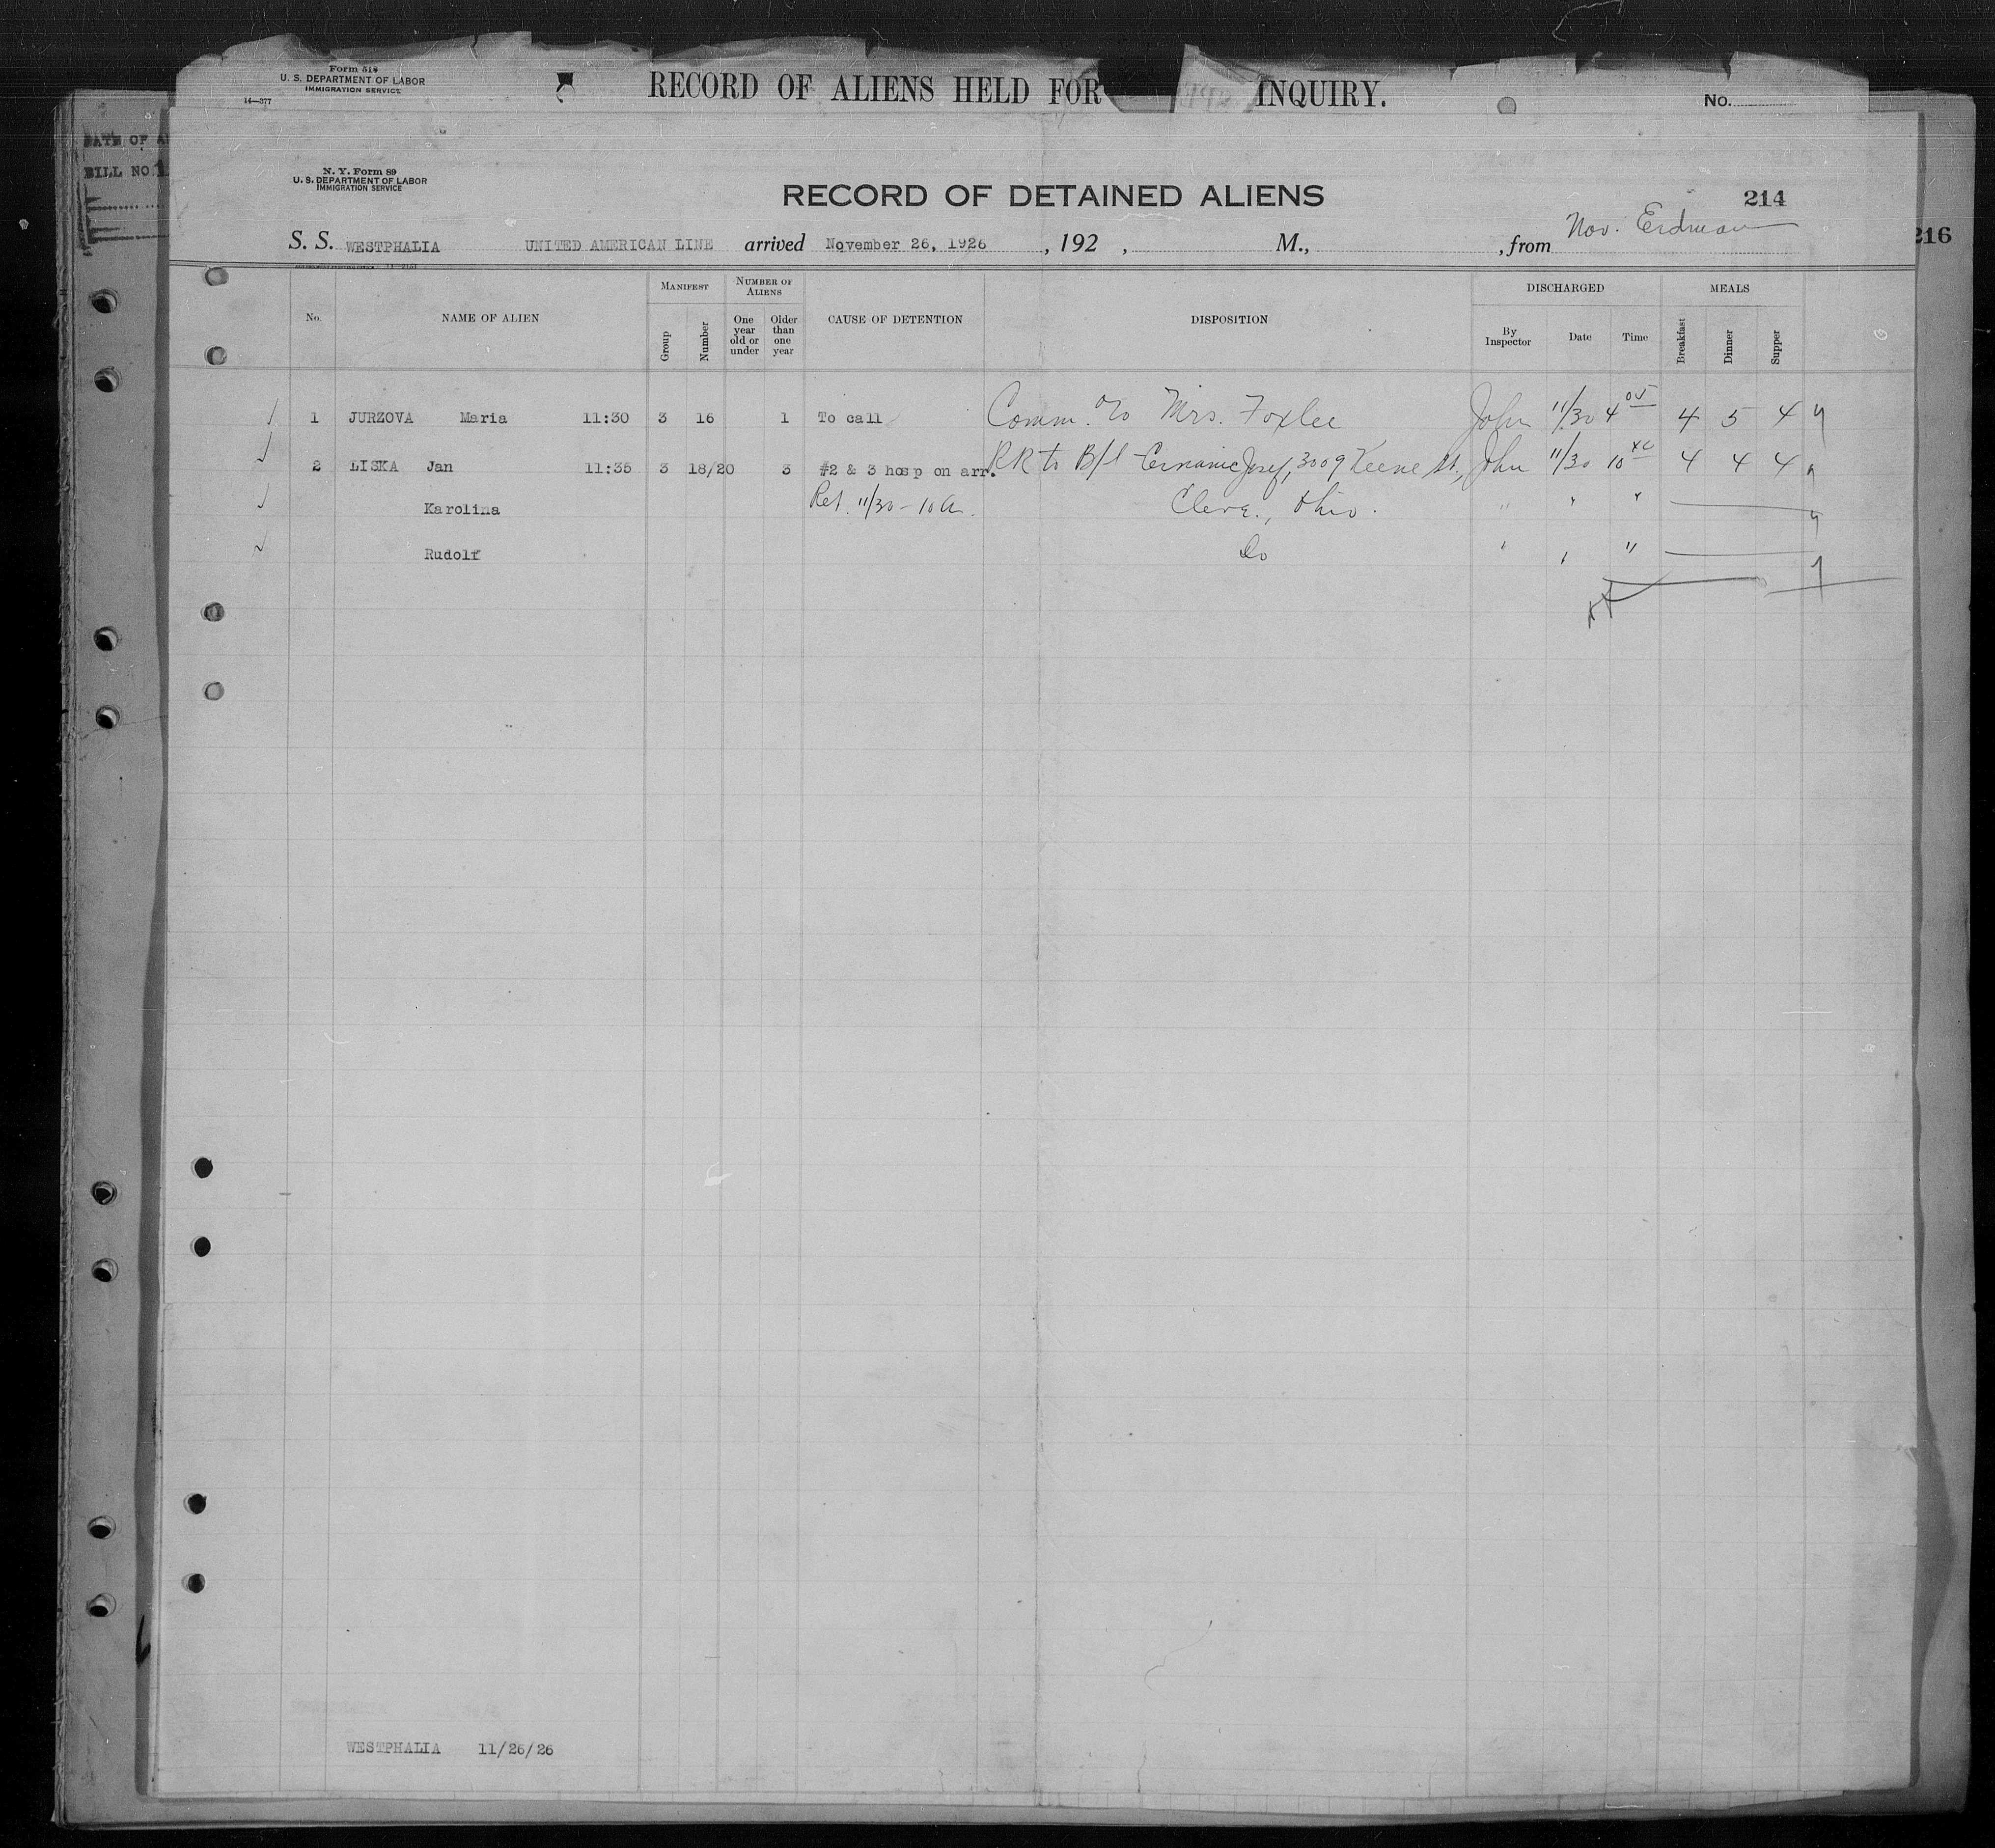 Form 518
U. S. DEPARTMENT OF LABOR
IMMIGRATION SERVICE
14—377
RECORD OF ALIENS HELD FOR INQUIRY.
No.
DATE OF A
BILL NO.
N. Y. Form 89
U. S. DEPARTMENT OF LABOR
IMMIGRATION SERVICE
RECORD OF DETAINED ALIENS
214
216
S. S. WESTPHALIA UNITED AMERICAN LINE arrived November 26, 1926, 192 , M., , from Nov. Erdman
MANIFEST NUMBER OF ALIENS DISCHARGED MEALS
No. NAME OF ALIEN Group Number One year old or under Older than one year CAUSE OF DETENTION DISPOSITION By Inspector Date Time Breakfast Dinner Supper
1 JURZOVA Maria 11:30 3 16 1 To call Comm. to Mrs. Foxlee John 11/30 4 05 4 5 4
2 LISKA Jan 11:35 3 18/20 3 #2 & 3 hosp on arr. RR to B/l Josef, 3009 Keene St., John 11/30 10 4 4 4
Karolina Rel. 11/30 - 10 a. Cleve., Ohio. " " "
Rudolf Do " " "
WESTPHALIA 11/26/26